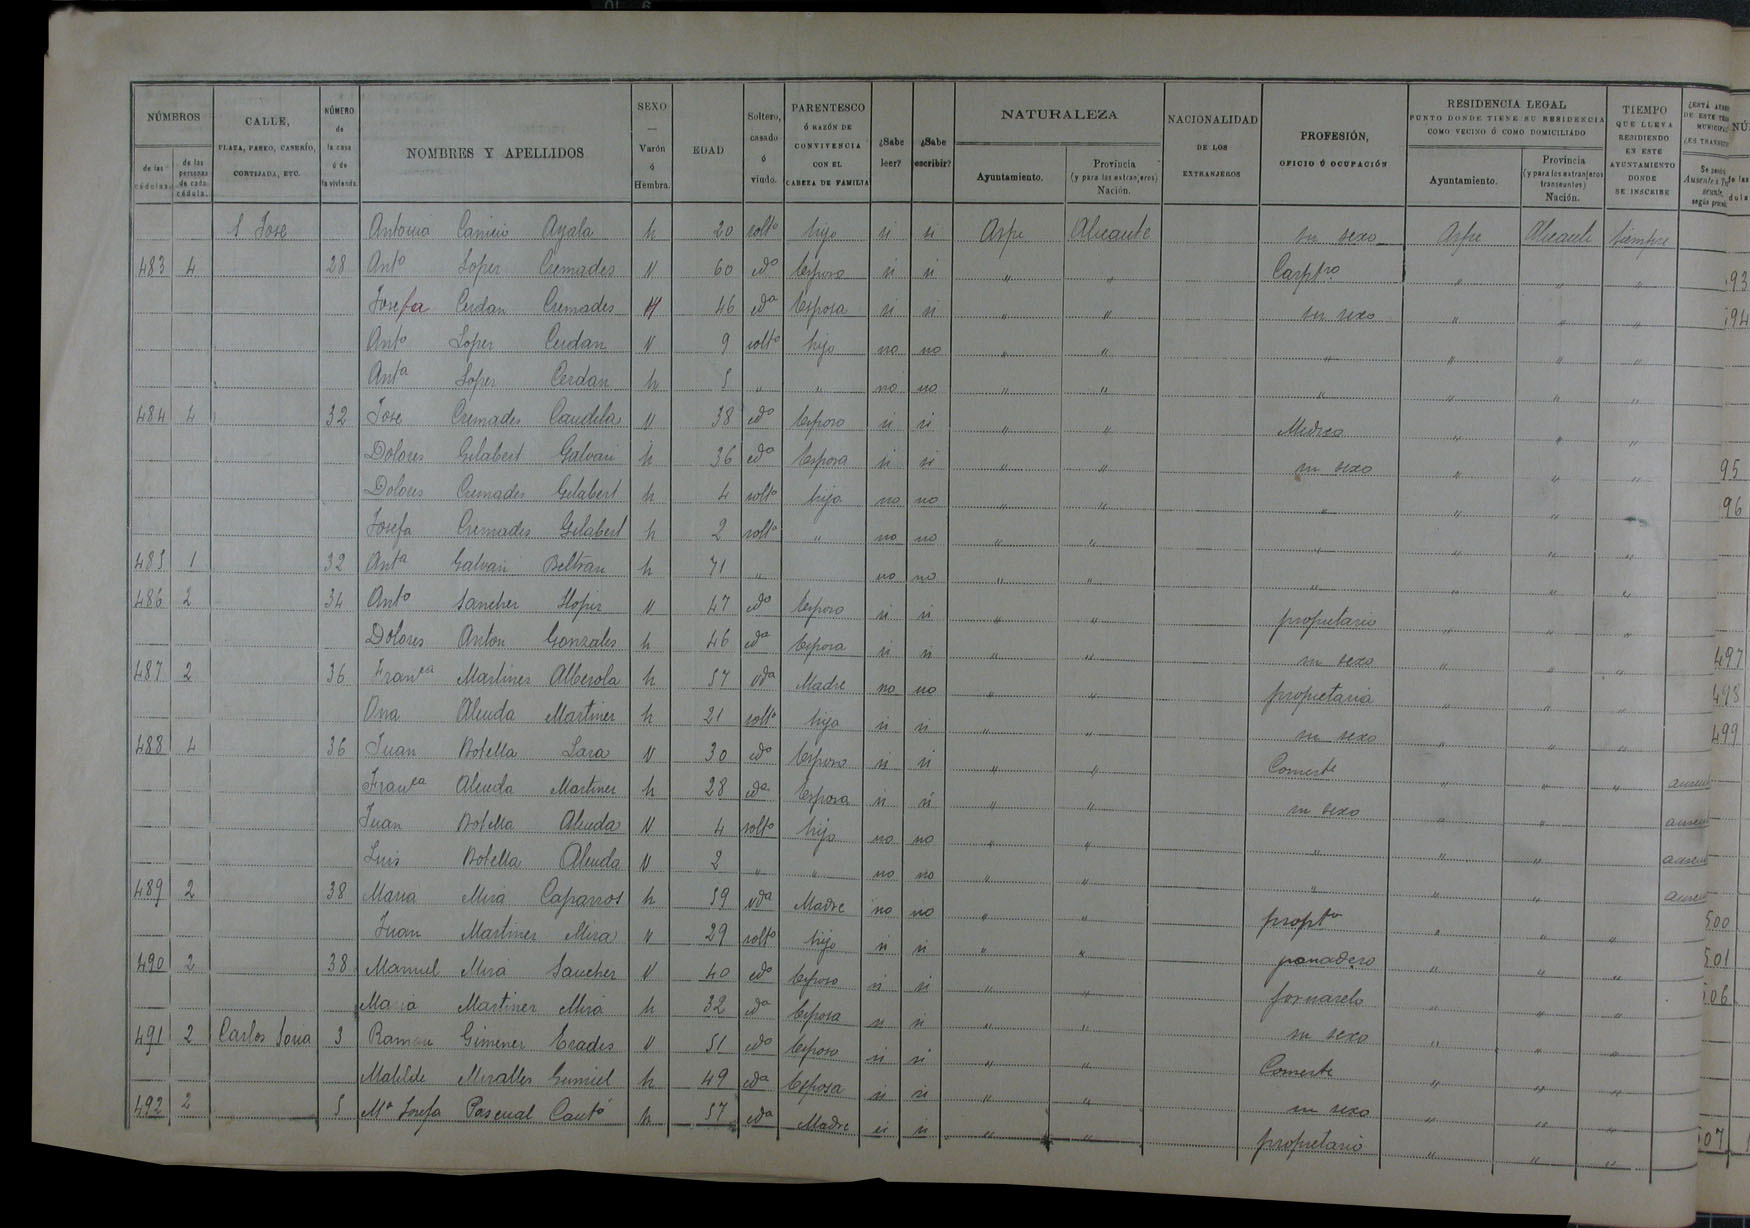 NÚMEROS | CALLE, PLAZA, PASEO, CASERÍO, CORTIJADA, ETC. | NÚMERO de la casa ó de la vivienda. | NOMBRES Y APELLIDOS | SEXO — Varón ó Hembra. | EDAD | Soltero, casado ó viudo. | PARENTESCO Ó RAZÓN DE CONVIVENCIA CON EL CABEZA DE FAMILIA | ¿Sabe leer? | ¿Sabe escribir? | NATURALEZA | NACIONALIDAD DE LOS EXTRANJEROS | PROFESIÓN, OFICIO Ú OCUPACIÓN | RESIDENCIA LEGAL PUNTO DONDE TIENE SU RESIDENCIA COMO VECINO Ó COMO DOMICILIADO | TIEMPO QUE LLEVA RESIDIENDO EN ESTE AYUNTAMIENTO DONDE SE INSCRIBE
de las cédulas. | de las personas de cada cédula. | Ayuntamiento. | Provincia (y para los extranjeros) Nación. | Ayuntamiento. | Provincia (y para los extranjeros transeuntes) Nación.
S Jose Antonia Canicio Ayala h 20 solto hijo si si Aspe Alicante su sexo Aspe Alicante siempre
483 4 28 Anto Loper Cremades V 60 cdo Esposo si si " " Carptro " " " 93
Josefa Cerdan Cremades H 46 cda Esposa si si " " su sexo " " " 94
Anto Loper Cerdan V 9 solto hijo no no " " " " " "
Anta Loper Cerdan h 5 " " no no " " " " " "
484 4 32 Jose Cremades Candela V 38 cdo Esposo si si " " Medico " " "
Dolores Gilabert Galvan h 36 cda Esposa si si " " su sexo " " " 95
Dolores Cremades Gilabert h 4 solto hija no no " " " " " " 96
Josefa Cremades Gilabert h 2 solto " no no " " " " " "
485 1 32 Anta Galvan Beltran h 71 " no no " " " " " "
486 2 34 Anto Sancher Llopis V 47 cdo Esposo si si " " propietario " " "
Dolores Anton Gonzales h 46 cda Esposa si si " " su sexo " " " 497
487 2 36 Franca Martines Alberola h 57 vda Madre no no " " propietaria " " " 498
Ona Alenda Martiner h 21 solto hija si si " " su sexo " " " 499
488 4 36 Juan Botella Lara V 30 cdo Esposo si si " " Comerte " " " ausen
Franca Alenda Martiner h 28 cda Esposa si si " " su sexo " " ausen
Juan Botella Alenda V 4 solto hijo no no " " " " " ausen
Luis Botella Alenda V 2 " " no no " " " " " ausen
489 2 38 Maria Mira Caparros h 59 vda Madre no no " " propta " " " 500
Juan Martiner Mira V 29 solto hijo si si " " panadero " " " 501
490 2 38 Manuel Mira Sancher V 40 cdo Esposo si si " " " " " 506
Maria Martiner Mira h 32 cda Esposa si si " " su sexo " " "
491 2 Carlos Soria 3 Ramon Gimener Erades V 51 cdo Esposo si si " " Comerte " " "
Matilde Miralles Gumiel h 49 cda Esposa si si " " su sexo " " "
492 2 5 Ma Josefa Pascual Cantó h 57 cda Madre si si " " propietario " " " 507